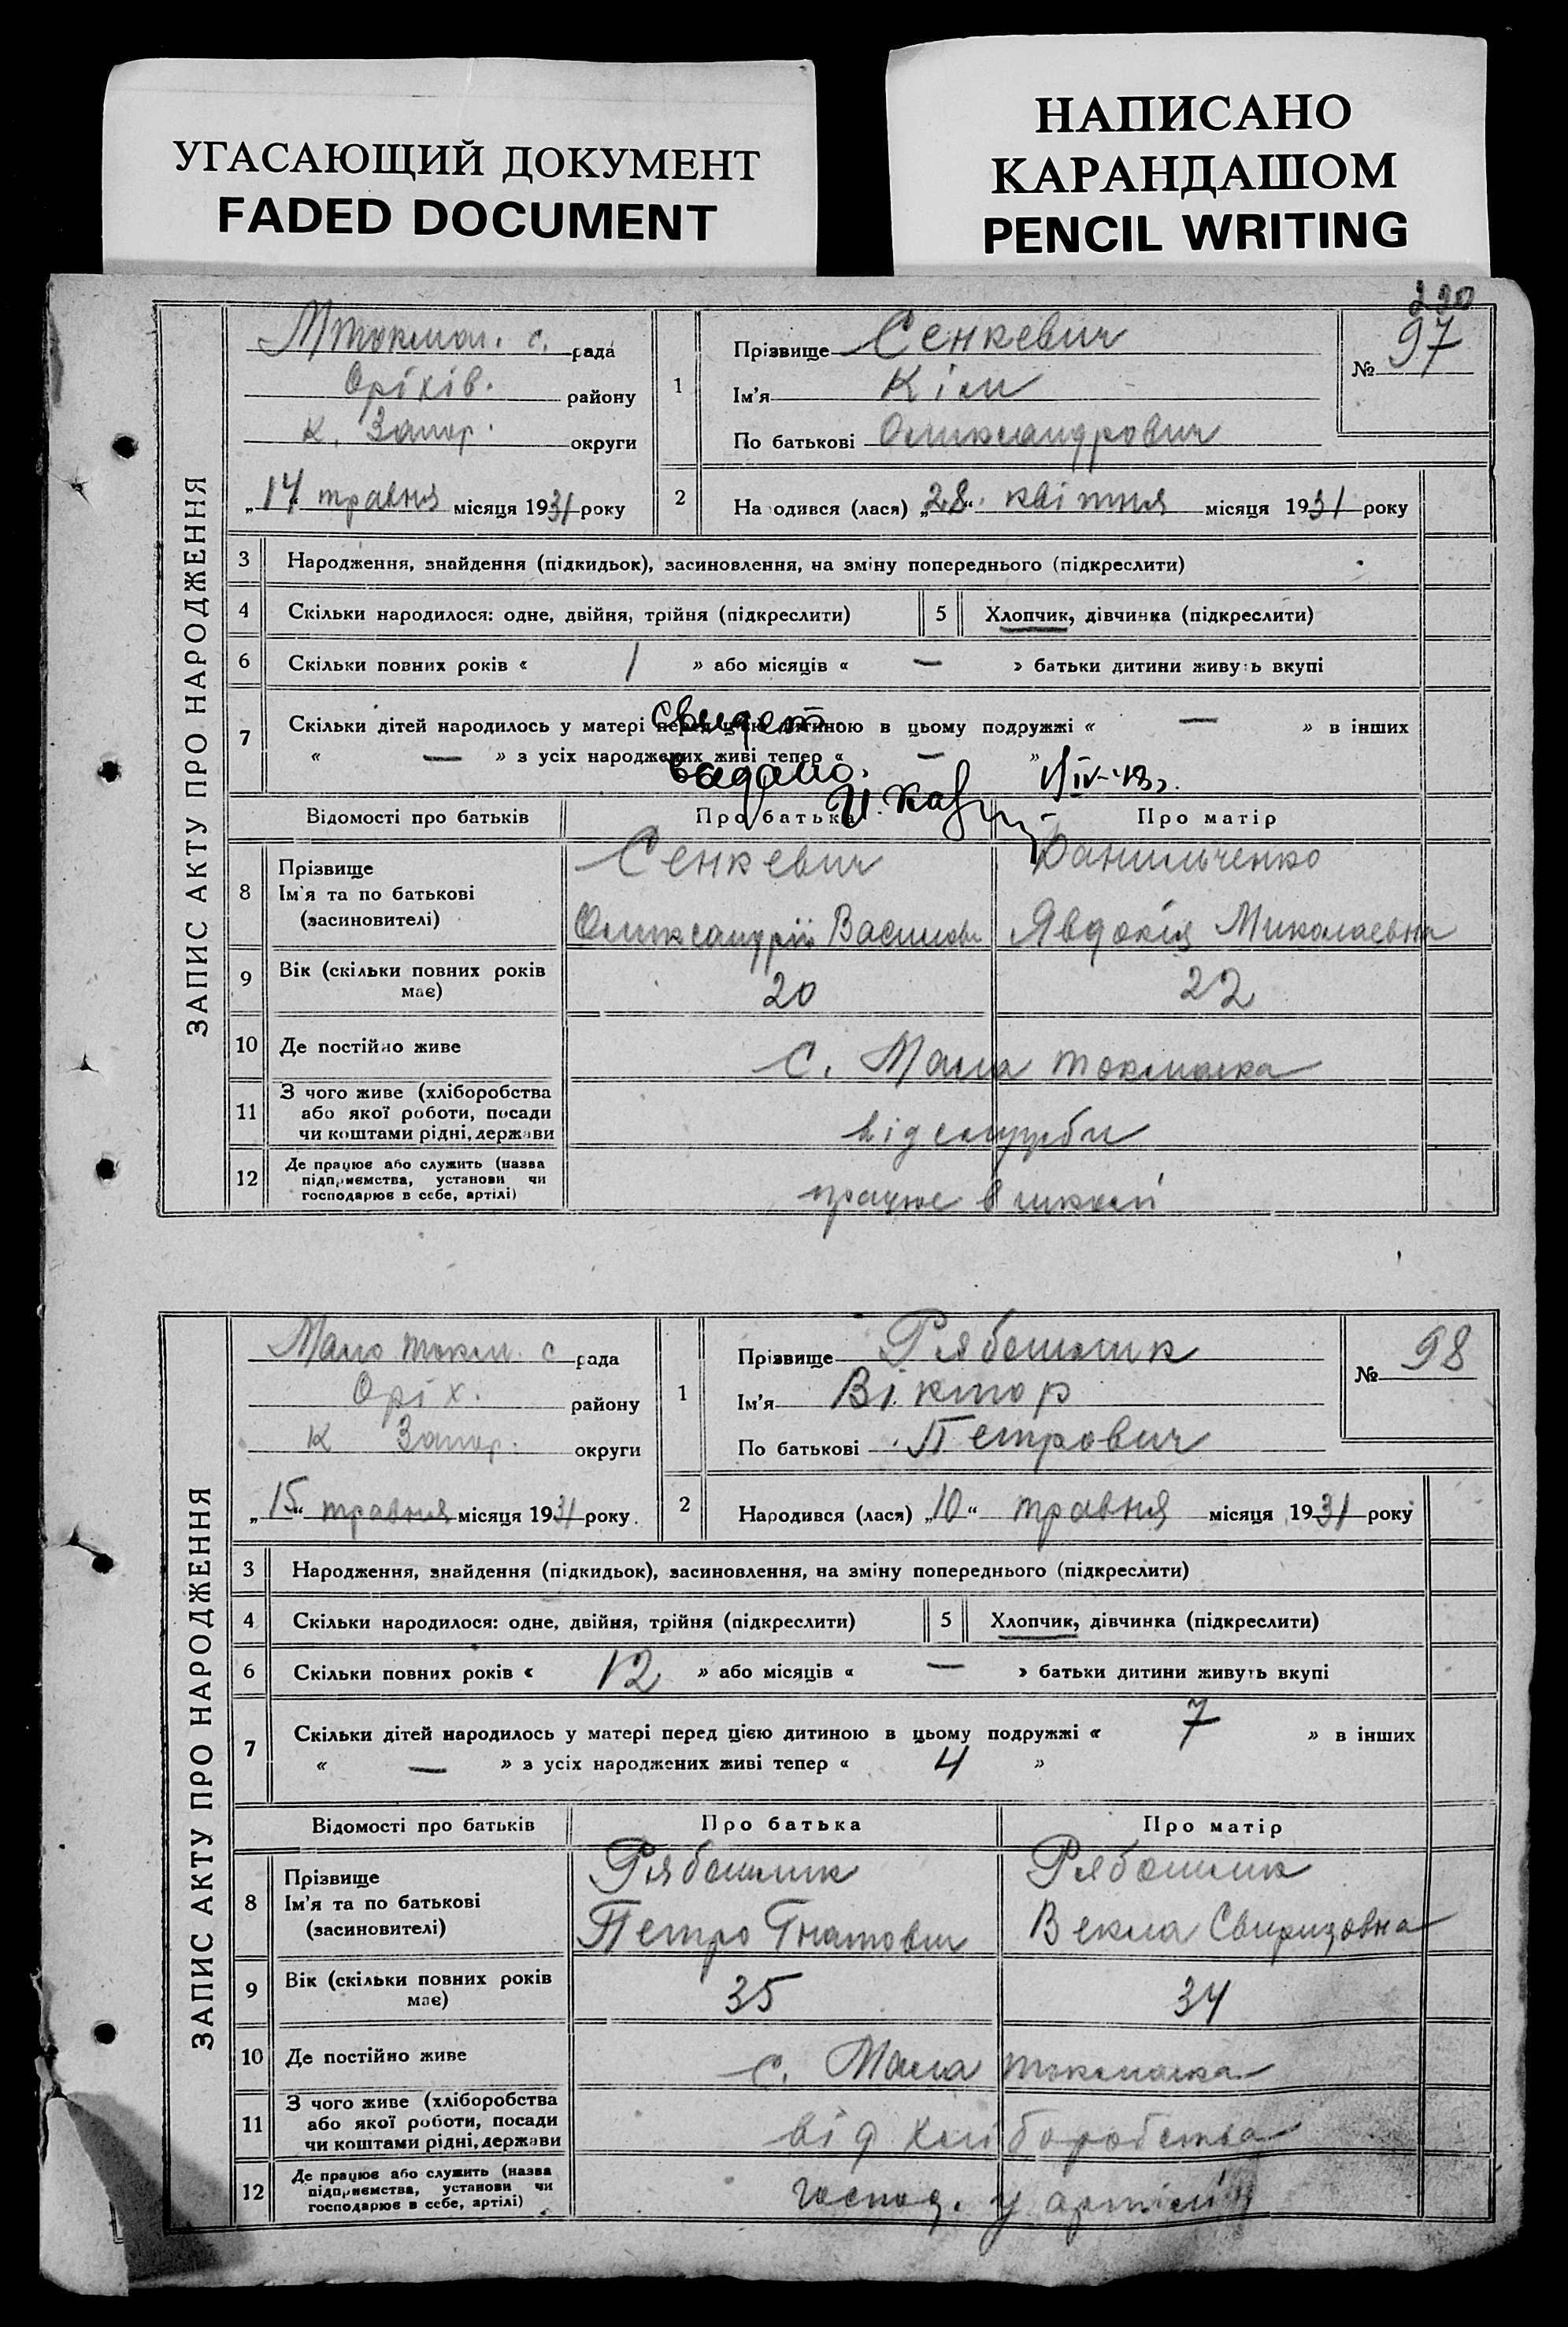 УГАСАЮЩИЙ ДОКУМЕНТ
FADED DOCUMENT
НАПИСАНО
КАРАНДАШОМ
PENCIL WRITING
ЗАПИС АКТУ ПРО НАРОДЖЕННЯ
Мтокмач. с. рада
Оріхів. району
к. Запор. округи
„14“ травня місяця 1931 року
1
Прізвище Сенкевич
Ім'я Кім
По батькові Олександрович
№ 97
2
На одився (лася) „28“ квітня місяця 1931 року
3 Народження, знайдення (підкидьок), засиновлення, на зміну попереднього (підкреслити)
4 Скільки народилося: одне, двійня, трійня (підкреслити) 5 Хлопчик, дівчинка (підкреслити)
6 Скільки повних років « 1 » або місяців « — » батьки дитини живуть вкупі
7 Скільки дітей народилось у матері перед цією дитиною в цьому подружжі « — » в інших
« — » з усіх народжених живі тепер « — »
свидет.
видано.
Відомості про батьків Про батька Про матір
8 Прізвище
Ім'я та по батькові
(засиновителі)
Сенкевич Данильченко
Олександрій Василов Явдокія Миколаевна
9 Вік (скільки повних років має) 20 22
10 Де постійно живе с. Мала токмачка
11 З чого живе (хліборобства
або якої роботи, посади
чи коштами рідні, держави
від служби
12 Де працює або служить (назва
підприємства, установи чи
господарює в себе, артілі)
працює в школі
ЗАПИС АКТУ ПРО НАРОДЖЕННЯ
Мало токм. с рада
Оріх. району
к Запор. округи
„15“ травня місяця 1931 року
1
Прізвище Рябошлик
Ім'я Віктор
По батькові Петрович
№ 98
2
Народився (лася) „10“ травня місяця 1931 року
3 Народження, знайдення (підкидьок), засиновлення, на зміну попереднього (підкреслити)
4 Скільки народилося: одне, двійня, трійня (підкреслити) 5 Хлопчик, дівчинка (підкреслити)
6 Скільки повних років « 12 » або місяців « — » батьки дитини живуть вкупі
7 Скільки дітей народилось у матері перед цією дитиною в цьому подружжі « 7 » в інших
« — » з усіх народжених живі тепер « 4 »
Відомості про батьків Про батька Про матір
8 Прізвище
Ім'я та по батькові
(засиновителі)
Рябошлик Рябошлик
Петро Гнатович Векла Свиридовна
9 Вік (скільки повних років має) 35 34
10 Де постійно живе с. Мала токмачка
11 З чого живе (хліборобства
або якої роботи, посади
чи коштами рідні, держави
від хліборобства
12 Де працює або служить (назва
підприємства, установи чи
господарює в себе, артілі)
господ. у артілі